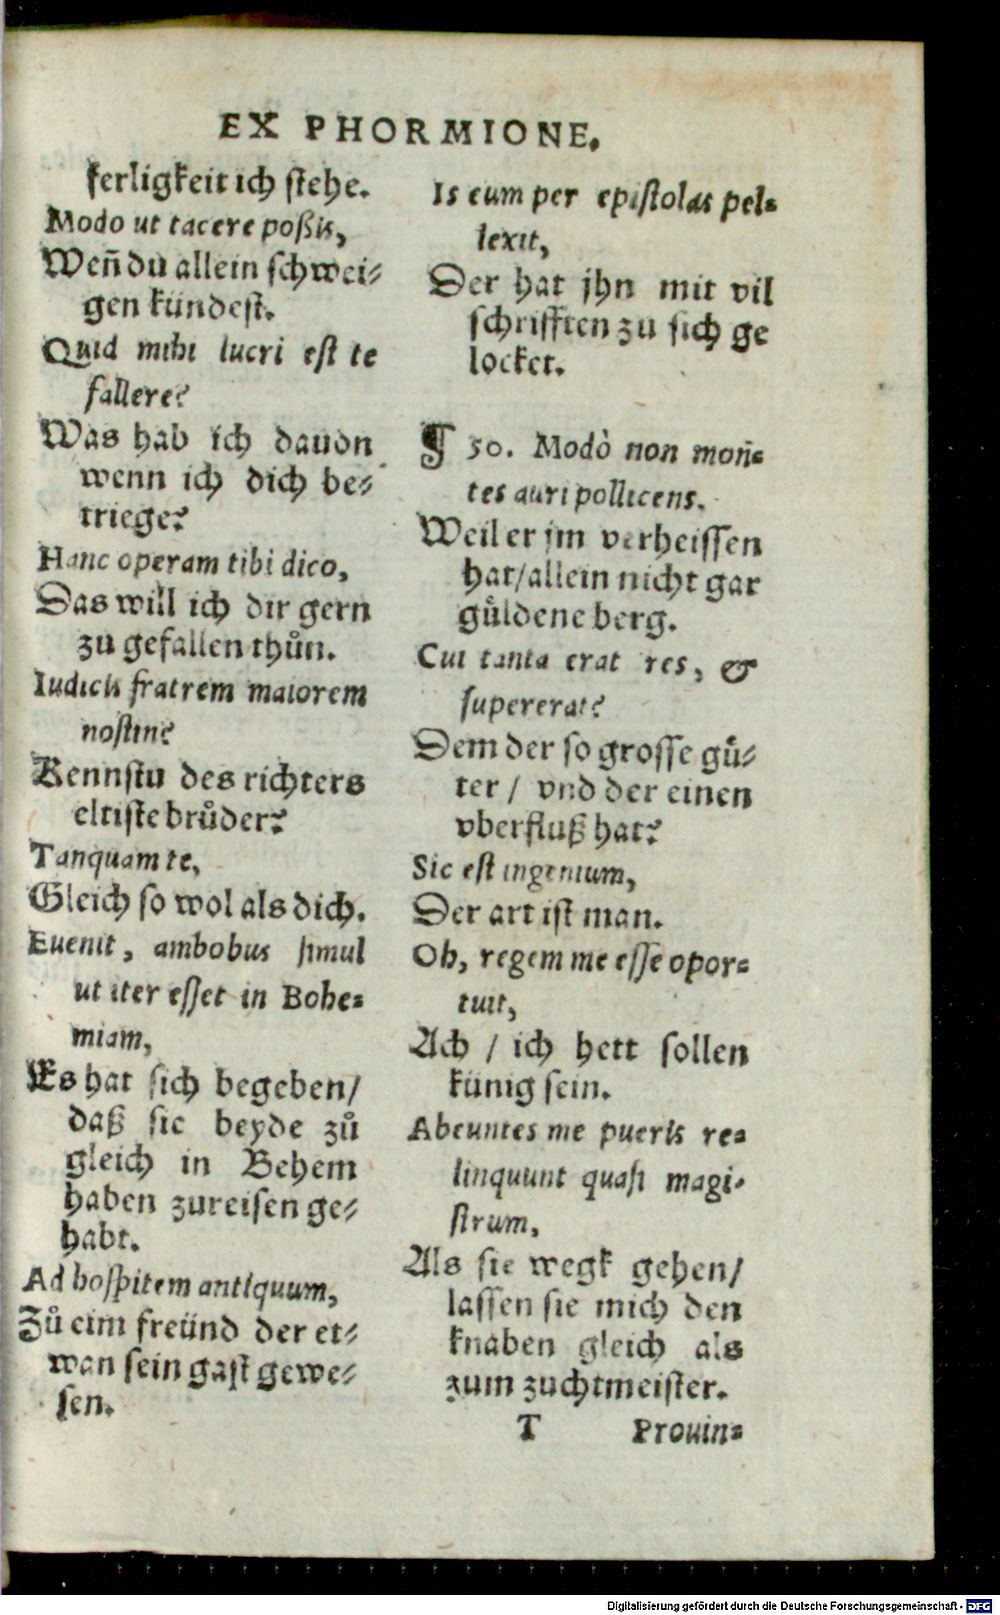 EX PHORMIONE.
ferligkeit ich stehe.
Modo ut tacere poßis,
Weñ du allein schwei⸗
gen kündest.
Quid mihi lucri est te
fallere?
Was hab ich dauon
wenn ich dich be⸗
triege?
Hanc operam tibi dico,
Das will ich dir gern
zu gefallen thůn.
Iudicis fratrem maiorem
nostin?
Kennstu des richters
eltiste brůder?
Tanquam te,
Gleich so wol als dich.
Euenit, ambobus simul
ut iter esset in Bohe⸗
miam,
Es hat sich begeben/
daß sie beyde zů
gleich in Behem
haben zureisen ge⸗
habt.
Ad hospitem antiquum,
Zů eim freünd der et⸗
wan sein gast gewe⸗
sen.
Is eum per epistolas pel⸗
lexit,
Der hat jhn mit vil
schrifften zu sich ge
locket.
¶ 50. Modò non moñ⸗
tes auri pollicens.
Weil er jm verheissen
hat/allein nicht gar
gůldene berg.
Cui tanta erat res, &
supererat?
Dem der so grosse gů⸗
ter / vnd der einen
vberfluß hat?
Sic est ingenium,
Der art ist man.
Oh, regem me esse opor⸗
tuit,
Ach / ich hett sollen
künig sein.
Abeuntes me pueris re⸗
linquunt quasi magi⸗
strum,
Als sie wegk gehen/
lassen sie mich den
knaben gleich als
zum zuchtmeister.
T Prouin⸗
Digitalisierung gefördert durch die Deutsche Forschungsgemeinschaft - DFG